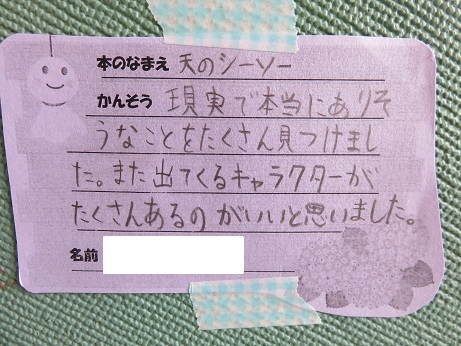 本のなまえ 天のシーソー
かんそう 現実で本当にありそ
うなことをたくさん見つけまし
た。また出てくるキャラクターが
たくさんあるのがいいと思いました。
名前